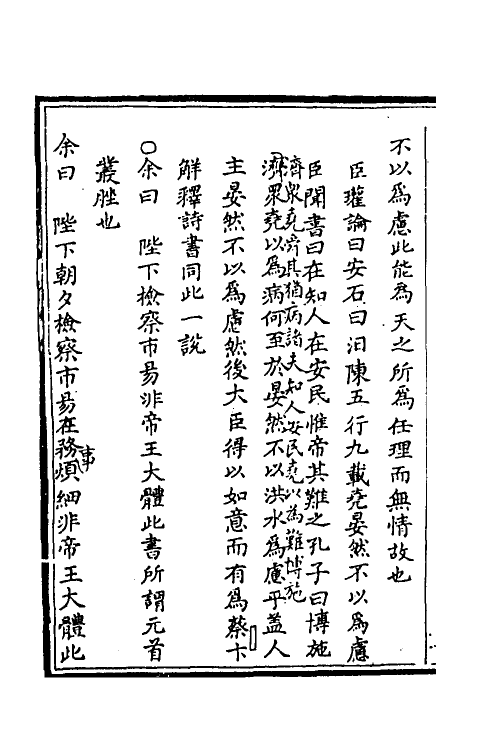 不以為慮此能為天之所為任理而無情故也
臣瓘論曰安石曰汨陳五行九載堯晏然不以為慮
臣聞書曰在知人在安民惟帝其難之孔子曰博施
濟衆堯舜其猶病諸夫知人安民堯以為難博施
濟眾堯以為病何至於晏然不以洪水為慮乎蓋人
主晏然不以為慮然後大臣得以如意而有為蔡卞
解釋詩書同此一說
○余曰 陛下檢察市易非帝王大體此書所謂元首
叢脞也
余曰 陛下朝夕檢察市易在務煩細非帝王大體此
事